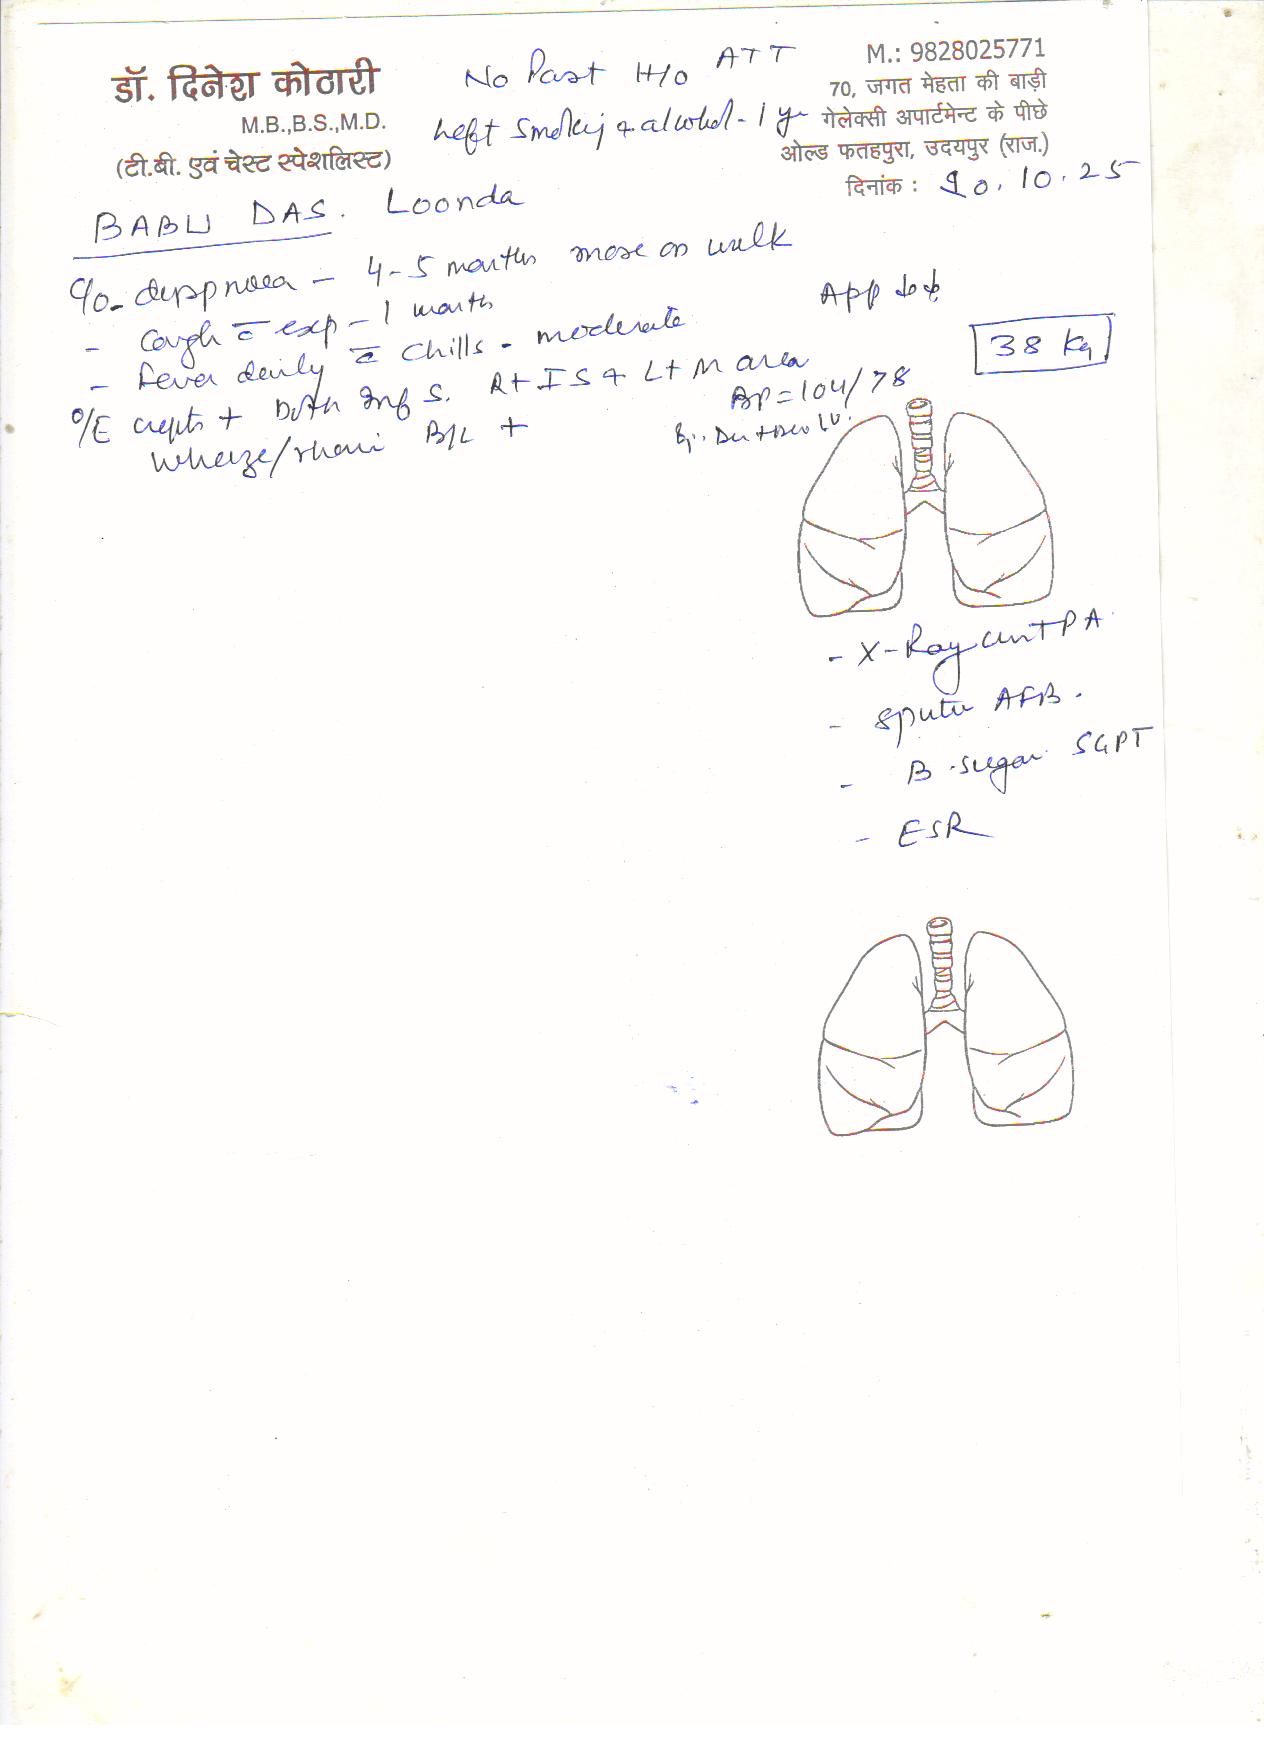 डॉ. दिनेश कोठारी
M.B.,B.S.,M.D.
(टी.बी. एवं चेस्ट स्पेशलिस्ट)
No Past H/o ATT
Left smoking & alcohol - 1 yr
M.: 9828025771
70, जगत मेहता की बाड़ी
गेलेक्सी अपार्टमेन्ट के पीछे
ओल्ड फतहपुरा, उदयपुर (राज.)
दिनांक : 10.10.25
BABU DAS. Loonda
C/o - dyspnoea - 4-5 months more on walk
- Cough c̄ exp - 1 months
- Fever daily c̄ chills - moderate
App ↓↓
38 Kg
O/E crepts + Both Inf S. R+ IS + L+ M area
Wheeze/rhoni B/L +
BP = 104/78
- X-Ray chest PA
- Sputu AFB.
- B. sugar SGPT
- ESR